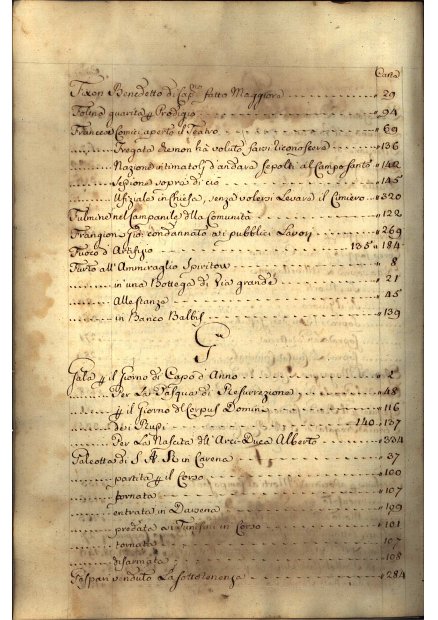 Carta
Fixon Benedetto di Cap.no fatto Maggiore " 29
Folina guarita p Prodigio " 94
Francea Comici, aperto il Teatro " 69
Fregata che non hà voluto farvi riconoscere " 136
Nazione intimatogl d'andara sepolti al Campo Santo " 142
Sessione sopra di ciò " 145
Uffiziale in Chiesa, senza volersi Levare il Cimiero " 320
Fulmine nel Campanile della Comunità " 122
Frangion Gio: condannato ai pubblici Lavori " 269
Fuoco d'Artifizio 135 " 184
Furto all'Ammiraglio Spiritow " 8
in una Bottega di Via grande " 21
Alle stanze " 45
in Banco Balbis " 139
G
Gala p il Giorno di Capo d'Anno " 2
Per La Pasqua di Resurrezione " 48
p il Giorno del Corpus Domini " 116
dei Rupi 140 " 137
Per La Nascita dell'Arci-Duca Alberto " 334
Galeotta di S A R in Carena " 37
partita p il Corso " 100
tornata " 107
entrata in Darsena " 109
predata ai Tunisini in Corso " 101
tornata " 107
disarmata " 108
Gaspari venduto La sottotenenza " 284